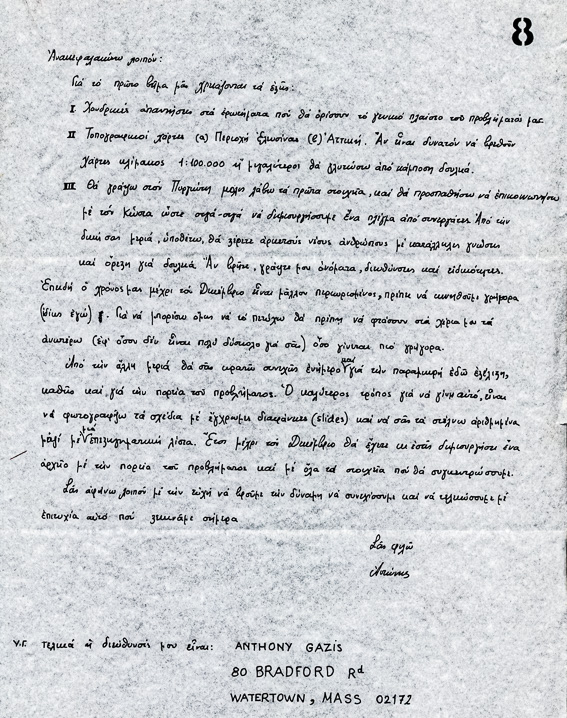 8
Ἀνακεφαλαιώνω λοιπόν:
Γιά τό πρῶτο βῆμα μᾶς χρειάζονται τά ἑξῆς:
I Χονδρικές ἀπαντήσεις στά ἐρωτήματα πού θά ὁρίσουν τό γενικό πλαίσιο τοῦ προβλήματός μας
II Τοπογραφικοί χάρτες (α) Περιοχή Ἐλευσίνας (β) Ἀττική. Ἄν εἶναι δυνατόν νά βρεθοῦν
χάρτες κλίμακος 1:100.000 ἤ μεγαλύτεροι θά γλυτώσω ἀπό κάμποση δουλειά.
III Θά γράψω στόν μόλις λάβω τά πρῶτα στοιχεῖα, καί θά προσπαθήσω νά ἐπικοινωνήσω
μέ τόν Κώστα ὥστε σιγά-σιγά νά δημιουργήσουμε ἕνα πλέγμα ἀπό συνεργάτες. Ἀπό τήν
δική σας μεριά, ὑποθέτω, θά ξέρετε ἀρκετούς νέους ἀνθρώπους μέ κατάλληλες γνώσεις
καί ὄρεξη γιά δουλειά. Ἄν βρῆτε, γράψτε μου ὀνόματα, διευθύνσεις καί εἰδικότητες.
Ἐπειδή ὁ χρόνος μας μέχρι τόν Δεκέμβριο εἶναι μᾶλλον περιωρισμένος, πρέπει νά κινηθοῦμε γρήγορα
(ἰδίως ἐγώ). Γιά νά μπορέσω ὅμως νά τό πετύχω θά πρέπει νά φτάσουν στά χέρια μου τά
ἀνωτέρω (ἐφ' ὅσον δέν εἶναι πολύ δύσκολο γιά σᾶς) ὅσο γίνεται πιό γρήγορα.
Ἀπό τήν ἄλλη μεριά θά σᾶς κρατῶ συνεχῶς ἐνήμερους γιά τήν παραμικρή ἐδῶ ἐξέλιξη,
καθώς καί γιά τήν πορεία τοῦ προβλήματος. Ὁ καλύτερος τρόπος γιά νά γίνη αὐτό, εἶναι
νά φωτογραφίζω τά σχέδια μέ ἔγχρωμες διαφάνειες (slides) καί νά σᾶς τά στέλνω ἀριθμημένα
μαζί μέ μιά ἐπεξηγηματική λίστα. Ἔτσι μέχρι τόν Δεκέμβριο θά ἔχετε κι ἐσεῖς δημιουργήσει ἕνα
ἀρχεῖο μέ τήν πορεία τοῦ προβλήματος καί μέ ὅλα τά στοιχεῖα πού θά συγκεντρώσουμε.
Σᾶς ἀφήνω λοιπόν μέ τήν εὐχή νά βροῦμε τήν δύναμη νά συνεχίσουμε καί νά τελειώσουμε μέ
ἐπιτυχία αὐτό πού ξεκινᾶμε σήμερα
Σᾶς φιλῶ
Ἀντώνης
Υ.Γ. Τελικά ἡ διεύθυνσίς μου εἶναι: ANTHONY GAZIS
80 BRADFORD Rd
WATERTOWN, MASS 02172